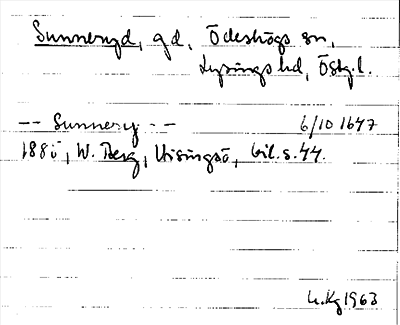 Sunneryd, gd, Ödeshögs sn,
Lysings hd, Östg.l.
-- Sunnery -- 6/10 1647
1885, W. Berg, Visingsö, bil. s. 44.
1963